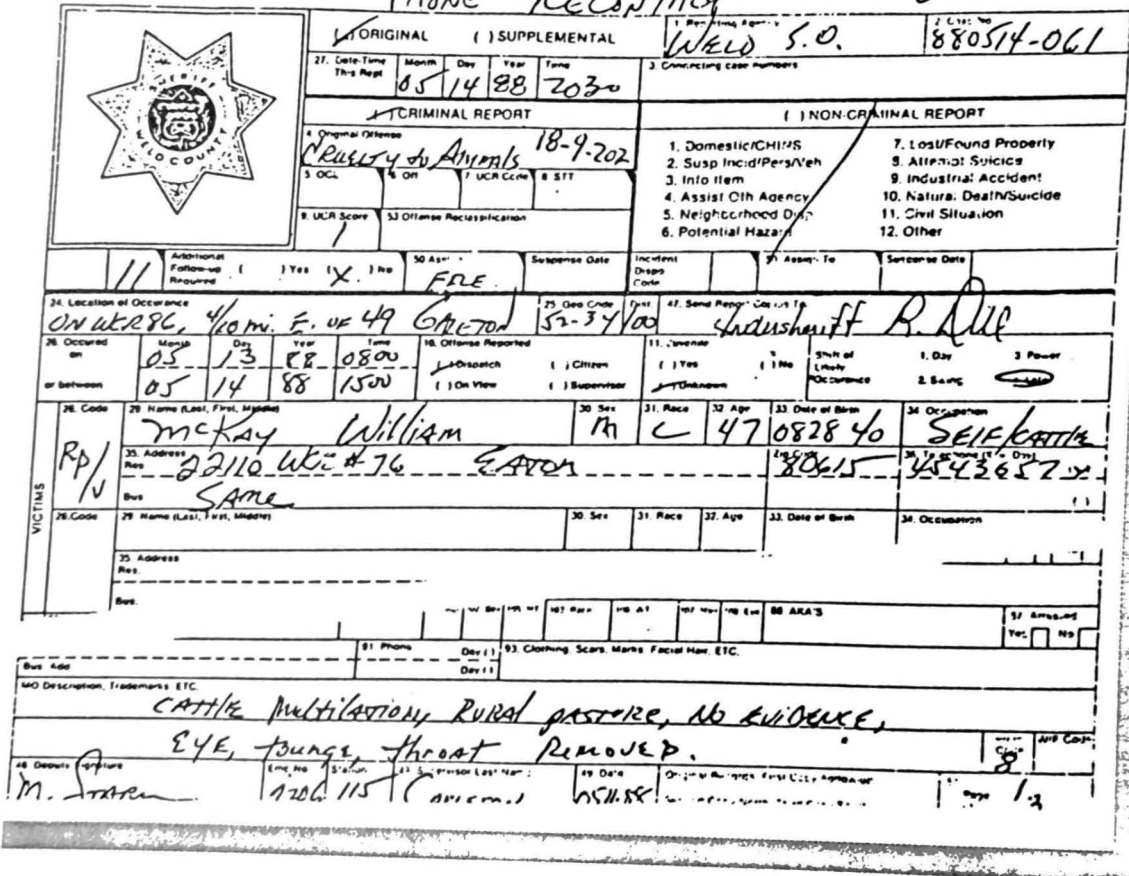 PHONE RECONTACT
(✓) ORIGINAL ( ) SUPPLEMENTAL
1 Reporting Agency
WELD S.O.
2 Case No
880514-061
27. Date-Time This Rept
Month Day Year Time
05 14 88 2030
3. Connecting case numbers
SHERIFF
WELD COUNTY
CRIMINAL REPORT
( ) NON-CRIMINAL REPORT
4 Original Offense
CRUELTY to ANIMALS 18-9-202
1. Domestic/CHINS
2. Susp Incid/Pers/Veh
3. Info Item
4. Assist Oth Agency
5. Neighborhood Disp
6. Potential Hazard
7. Lost/Found Property
8. Attempt Suicide
9. Industrial Accident
10. Natural Death/Suicide
11. Civil Situation
12. Other
5 OCL 6 Off 7 UCR Code 8 STT
9. UCR Score
1
53 Offense Reclassification
11
Additional Follow-up Required ( ) Yes (X) No
50 Asgn
FILE
Suspense Date
Incident Dispo Code
51 Assign To
Suspense Date
24. Location of Occurance
ON WCR 86, 4/10 mi. E. OF 49 GALETON
25 Geo Code Dist.
52-34 100
47. Send Report Copies To
Undersheriff R. Dill
26. Occured on
Month Day Year Time
05 13 88 0800
or between
05 14 88 1500
10. Offense Reported
Dispatch ( ) Citizen
( ) On View ( ) Supervisor
11. Juvenile
( ) Yes ( ) No
Unknown
Shift of Likely Occurance
1. Day 3 Power
2. Swing
VICTIMS
28. Code
RP/V
29 Name (Last, First, Middle)
McKAY William
30 Sex
M
31. Race
C
32. Age
47
33. Date of Birth
082840
34 Occupation
SELF/CATTLE
35. Address
Res 22110 WCR #76 EATON
Zip Code
80615
4543657
Bus SAME
28. Code 29 Name (Last, First, Middle) 30. Sex 31. Race 32. Age 33. Date of Birth 34. Occupation
35. Address
Res.
Bus.
88 AKA'S
Arrested
Yes No
Bus Add
91 Phone
Day ( )
Day ( )
93. Clothing, Scars, Marks Facial Hair, ETC.
MO Description, Trademarks ETC.
CATTLE MULTILATION, RURAL PASTURE, NO EVIDENCE,
EYE, TOUNGE, THROAT REMOVED.
8
48 Deputy Signature
M.
Emp. No Station
115
Supervisor Last Name
49 Date
Page 1-2